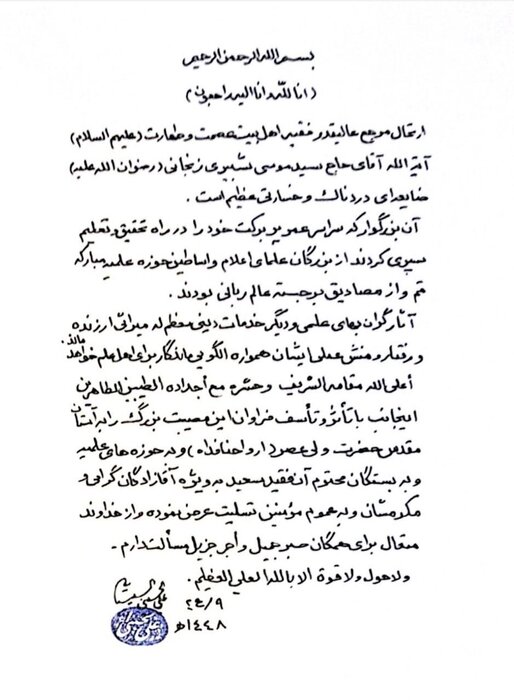 بسم الله الرحمن الرحیم
(انا لله و انا الیه راجعون)
ارتحال مرجع عالیقدر فقیه اهل بیت عصمت و طهارت (علیهم السلام)
آیة الله آقای حاج سید موسی شبیری زنجانی (رضوان الله علیه)
ضایعه‌ای دردناک و خسارتی عظیم است .
آن بزرگوار که سراسر عمر پر برکت خود را در راه تحقیق و تعلیم
سپری کردند از بزرگان علمای اعلام و اساطین حوزه علمیه مبارکه
قم و از مصادیق برجسته عالم ربانی بودند .
آثار گران بهای علمی و دیگر خدمات دینی معظم له میراثی ارزنده
و رفتار و منش عملی ایشان همواره الگویی ماندگار برای اهل علم خواهد ماند.
أعلی الله مقامه الشریف وحشره مع أجداده الطیبین الطاهرین
اینجانب با تأثر و تأسف فراوان این مصیبت بزرگ را به آستان
مقدس حضرت ولی عصر (ارواحنا فداه) و به حوزه های علمیه
و به بستگان محترم آن فقید سعید به ویژه آقازادگان گرامی و
مکرمشان و به عموم مؤمنین تسلیت عرض نموده و از خداوند
متعال برای همگان صبر جمیل و أجر جزیل مسألت دارم .
ولا حول ولا قوة الا بالله العلي العظیم .
علي الحسیني السیستاني
۲۴/۹
۱۴۴۸ه